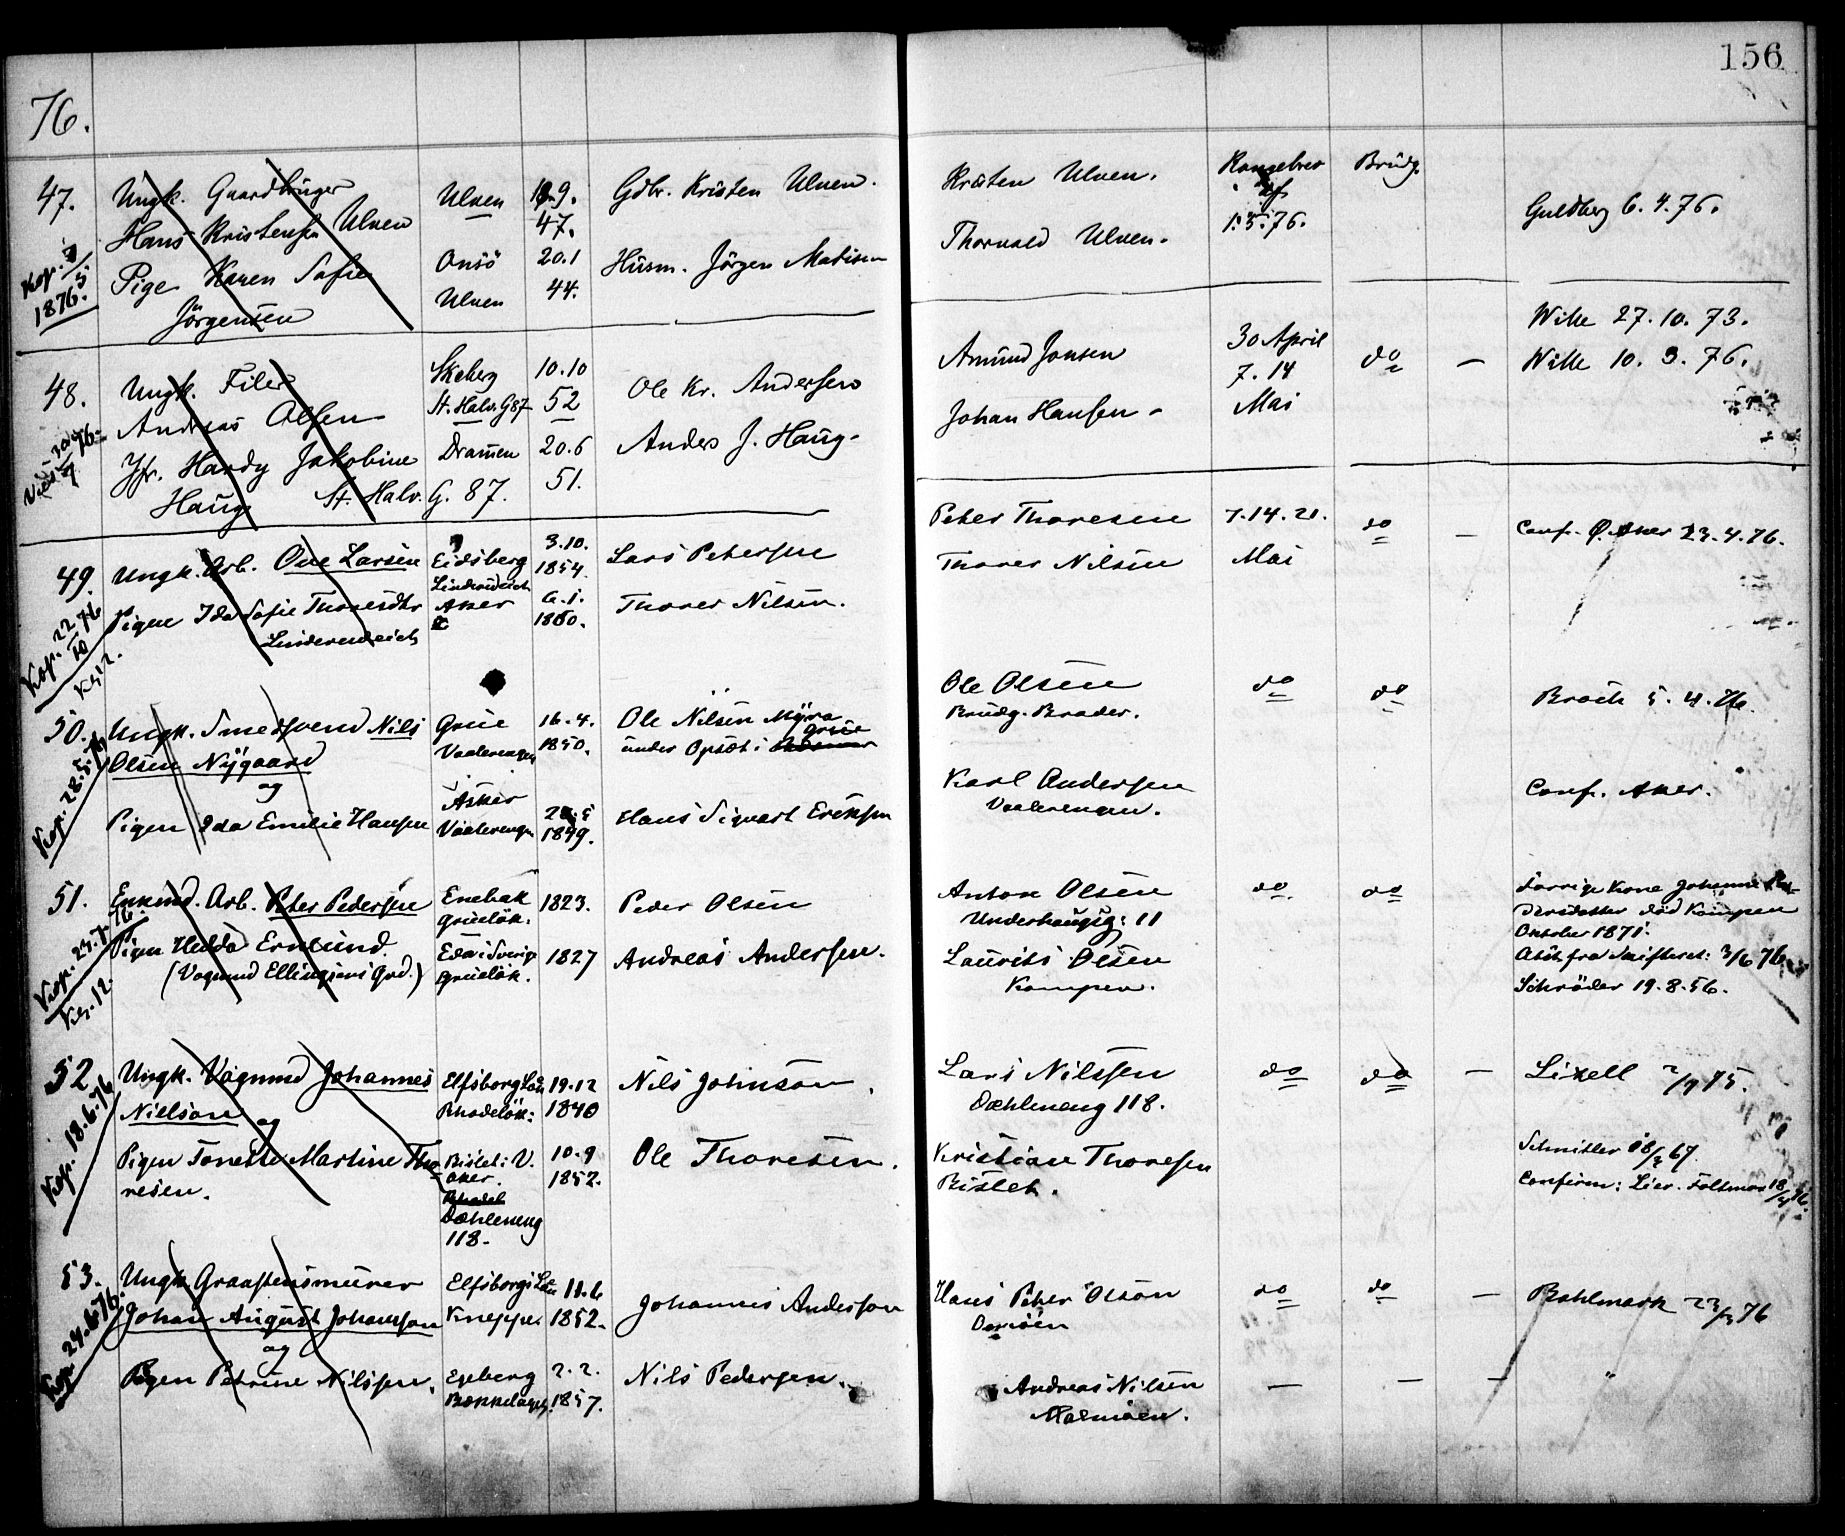 76.
156
47.
Ungk. Gaardbruger
Hans Kristensen Ulven
Ulven
19.9.
47.
Gdbr. Kristen Ulven.
Kristen Ulven.
Brudg.
Guldberg 6.4.76.
Kop. 
1876.
Pige Karen Sofie
Jörgensen
Onsö
Ulven
20.1
44.
Husm. Jörgen Matisen
Thorvald Ulven.
1.5.76.
48.
Ungk. Filer
Andreas Olsen
Skeberg
St. Halv. G 87
10.10
52
Ole Kr. Andersen
Amund Jonsen
30 April
7. 14
Mai
do
—
Wille 27.10.73.
Wille 10.3.76.
Jfr. Hardy Jakobine
Haug. St. Halv. G. 87.
Drammen
20.6
51.
Anders J. Haug.
Johan Hansen
49.
Ungk. Arb. Ole Larsen
Eidsberg
3.10.
1854.
Lars Petersen
Peter Thoresen
7. 14. 21.
Mai
do
—
Conf. Ø. Aker 23.4.76.
Kop. 22/10 76
Kl. 12.
Pigen Ida Sofie Thoresdtr
Linderudeich
Linderudeich
Aker
6.1.
1860.
Thores Nilsen.
Thores Nilsen
50.
Ungk. Smedsvend Nils
Olsen Nygaard
og
Grue
Vaalerengen
16.4.
1850.
Ole Nilsen Myra
under Opsæt i Grue
Ole Olsen
Brudg. Broder.
do
do
Broch 5.4.76.
Kop. 28.5.76
Pigen Ida Emilie Hansen
Asker
Vaalerengen
1849.
Hans Sigvart Eriksen
Karl Andersen
Vaalerengen.
Conf. Aker.
51.
Enkmd. Arb. Peter Pedersen
Enebak
Grueløk.
1823.
Peder Olsen
Anton Olsen
Underhaugsg: 11
do
do
Forrige Kone Johanne Pe-
dersdatter død Kampen
Oktober 1871.
Kop. 23.7.76.
Kl. 12.
Pigen Hedda Ernlund.
(Vognmd Ellingsens Grd.)
Eda i Sverige
Grueløk.
1827
Andreas Andersen.
Laurits Olsen
Kampen.
Attst fra Skifteret: 3/6 76
Schröder 19.8.56.
52
Ungk. Vognmd Johannes
Nielson
og
Elfsborg Län
Rhodeløk:
19.12
1840
Nils Johnson.
Lars Nilssen
Dæhleneng 118.
do
do
—
Lixell 2/9 75.
Kop. 18.6.76
Pigen Tonette Martine Tho-
resen.
Bislet i V.
Aker.
Dæhleneng
118.
10.9
1852.
Ole Thoresen.
Kristian Thoresen
Bislet.
Schnitler 67.
Confirm: Lier. Foltmar
53.
Ungk Graastensmurer
Johan August Johanson
og
Elfsborgs Län
Kneppe
11.6
1852.
Johannes Anderson
Hans Peter Olson
do
do
—
Bahlmark 23/3 76
Kop. 24.6 76.
Pigen Petrine Nilssen.
Egeberg
Bækkelaget.
2.2.
1857.
Nils Pedersen.
Andreas Nilsen
Malmøen.
—
—
—
"